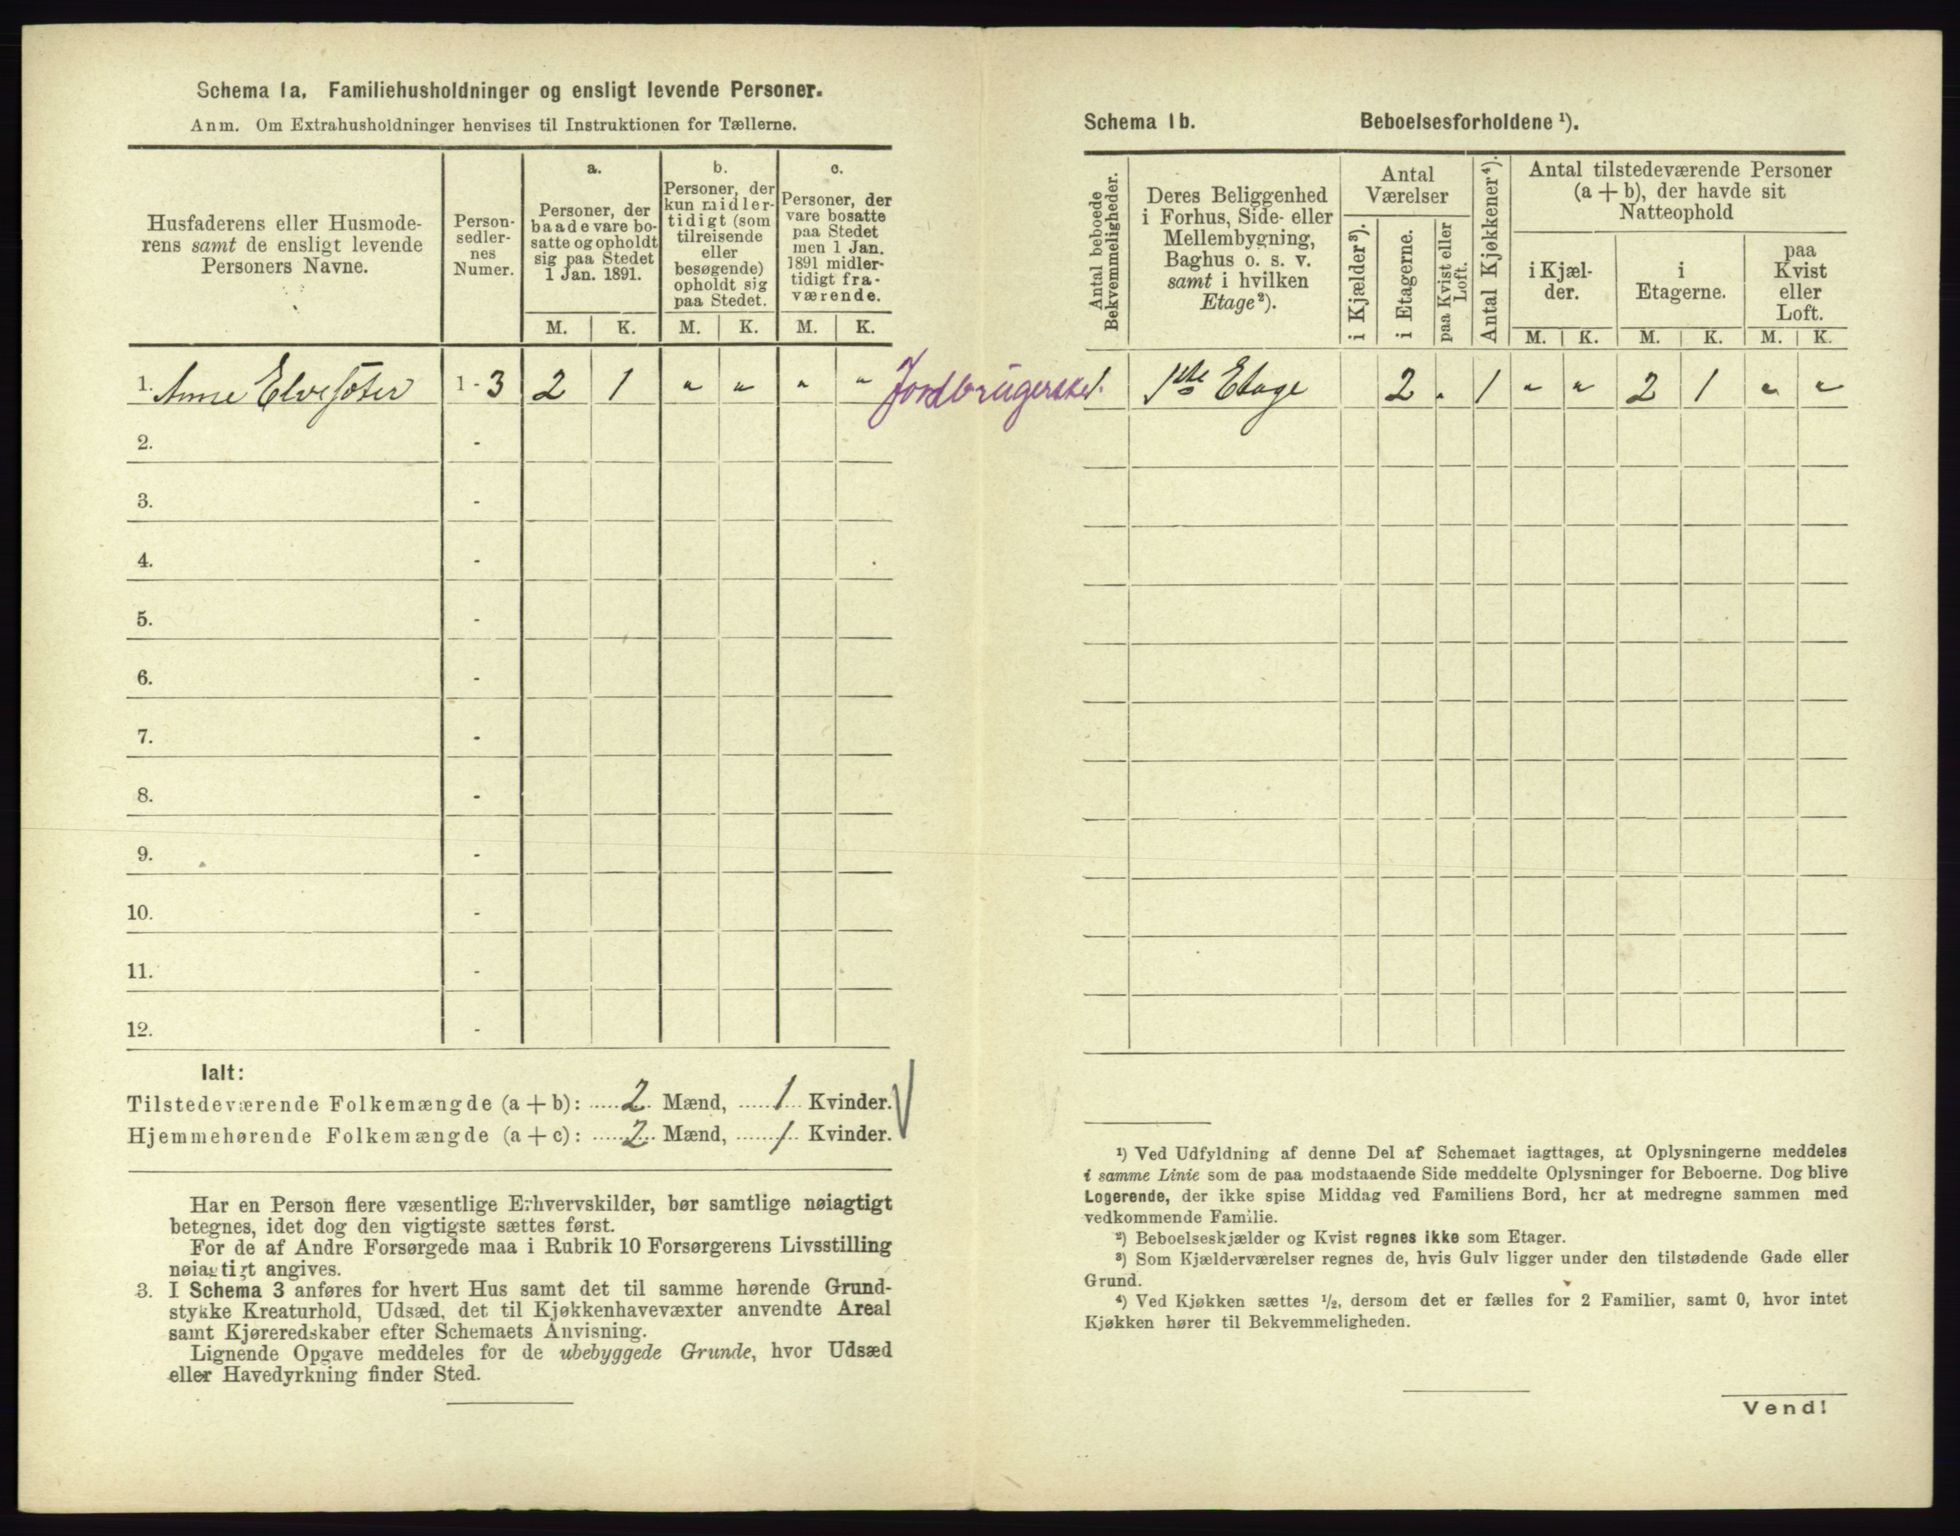 Schema 1a. Familiehusholdninger og ensligt levende Personer.
Anm. Om Extrahusholdninger henvises til Instruktionen for Tællerne.
Husfaderens eller Husmode-
rens samt de ensligt levende
Personers Navne.
Person-
sedler-
nes
Numer.
a.
Personer, der
baade vare bo-
satte og opholdt
sig paa Stedet
1 Jan. 1891.
b.
Personer, der
kun midler-
tidigt (som
tilreisende
eller
besøgende)
opholdt sig
paa Stedet.
c.
Personer, der
vare bosatte
paa Stedet
men 1 Jan.
1891 midler-
tidigt fra-
værende.
M. K. M. K. M. K.
1. Anne Elvesæter 1 - 3 2 1 " " " " Jordbrugerske
2. -
3. -
4. -
5. -
6. -
7. -
8. -
9. -
10. -
11. -
12. -
Ialt:
Tilstedeværende Folkemængde (a + b): 2 Mænd, 1 Kvinder.
Hjemmehørende Folkemængde (a + c): 2 Mænd, 1 Kvinder.
Har en Person flere væsentlige Erhvervskilder, bør samtlige nøiagtigt
betegnes, idet dog den vigtigste sættes først.
For de af Andre Forsørgede maa i Rubrik 10 Forsørgerens Livsstilling
nøiagtigt angives.
3. I Schema 3 anføres for hvert Hus samt det til samme hørende Grund-
stykke Kreaturhold, Udsæd, det til Kjøkkenhavevæxter anvendte Areal
samt Kjøreredskaber efter Schemaets Anvisning.
Lignende Opgave meddeles for de ubebyggede Grunde, hvor Udsæd
eller Havedyrkning finder Sted.
Schema 1b. Beboelsesforholdene ¹).
Antal beboede
Bekvemmeligheder.
Deres Beliggenhed
i Forhus, Side- eller
Mellembygning,
Baghus o. s. v.
samt i hvilken
Etage²).
Antal
Værelser
i Kjælder³).
i Etagerne.
paa Kvist eller
Loft.
Antal Kjøkkener⁴).
Antal tilstedeværende Personer
(a + b), der havde sit
Natteophold
i Kjæl-
der.
i
Etagerne.
paa
Kvist
eller
Loft.
M. K. M. K. M. K.
1. 1ste Etage 2 . 1 " " 2 1 " "
¹) Ved Udfyldning af denne Del af Schemaet iagttages, at Oplysningerne meddeles
i samme Linie som de paa modstaaende Side meddelte Oplysninger for Beboerne. Dog blive
Logerende, der ikke spise Middag ved Familiens Bord, her at medregne sammen med
vedkommende Familie.
²) Beboelseskjælder og Kvist regnes ikke som Etager.
³) Som Kjælderværelser regnes de, hvis Gulv ligger under den tilstødende Gade eller
Grund.
⁴) Ved Kjøkken sættes ½, dersom det er fælles for 2 Familier, samt 0, hvor intet
Kjøkken hører til Bekvemmeligheden.
Vend!